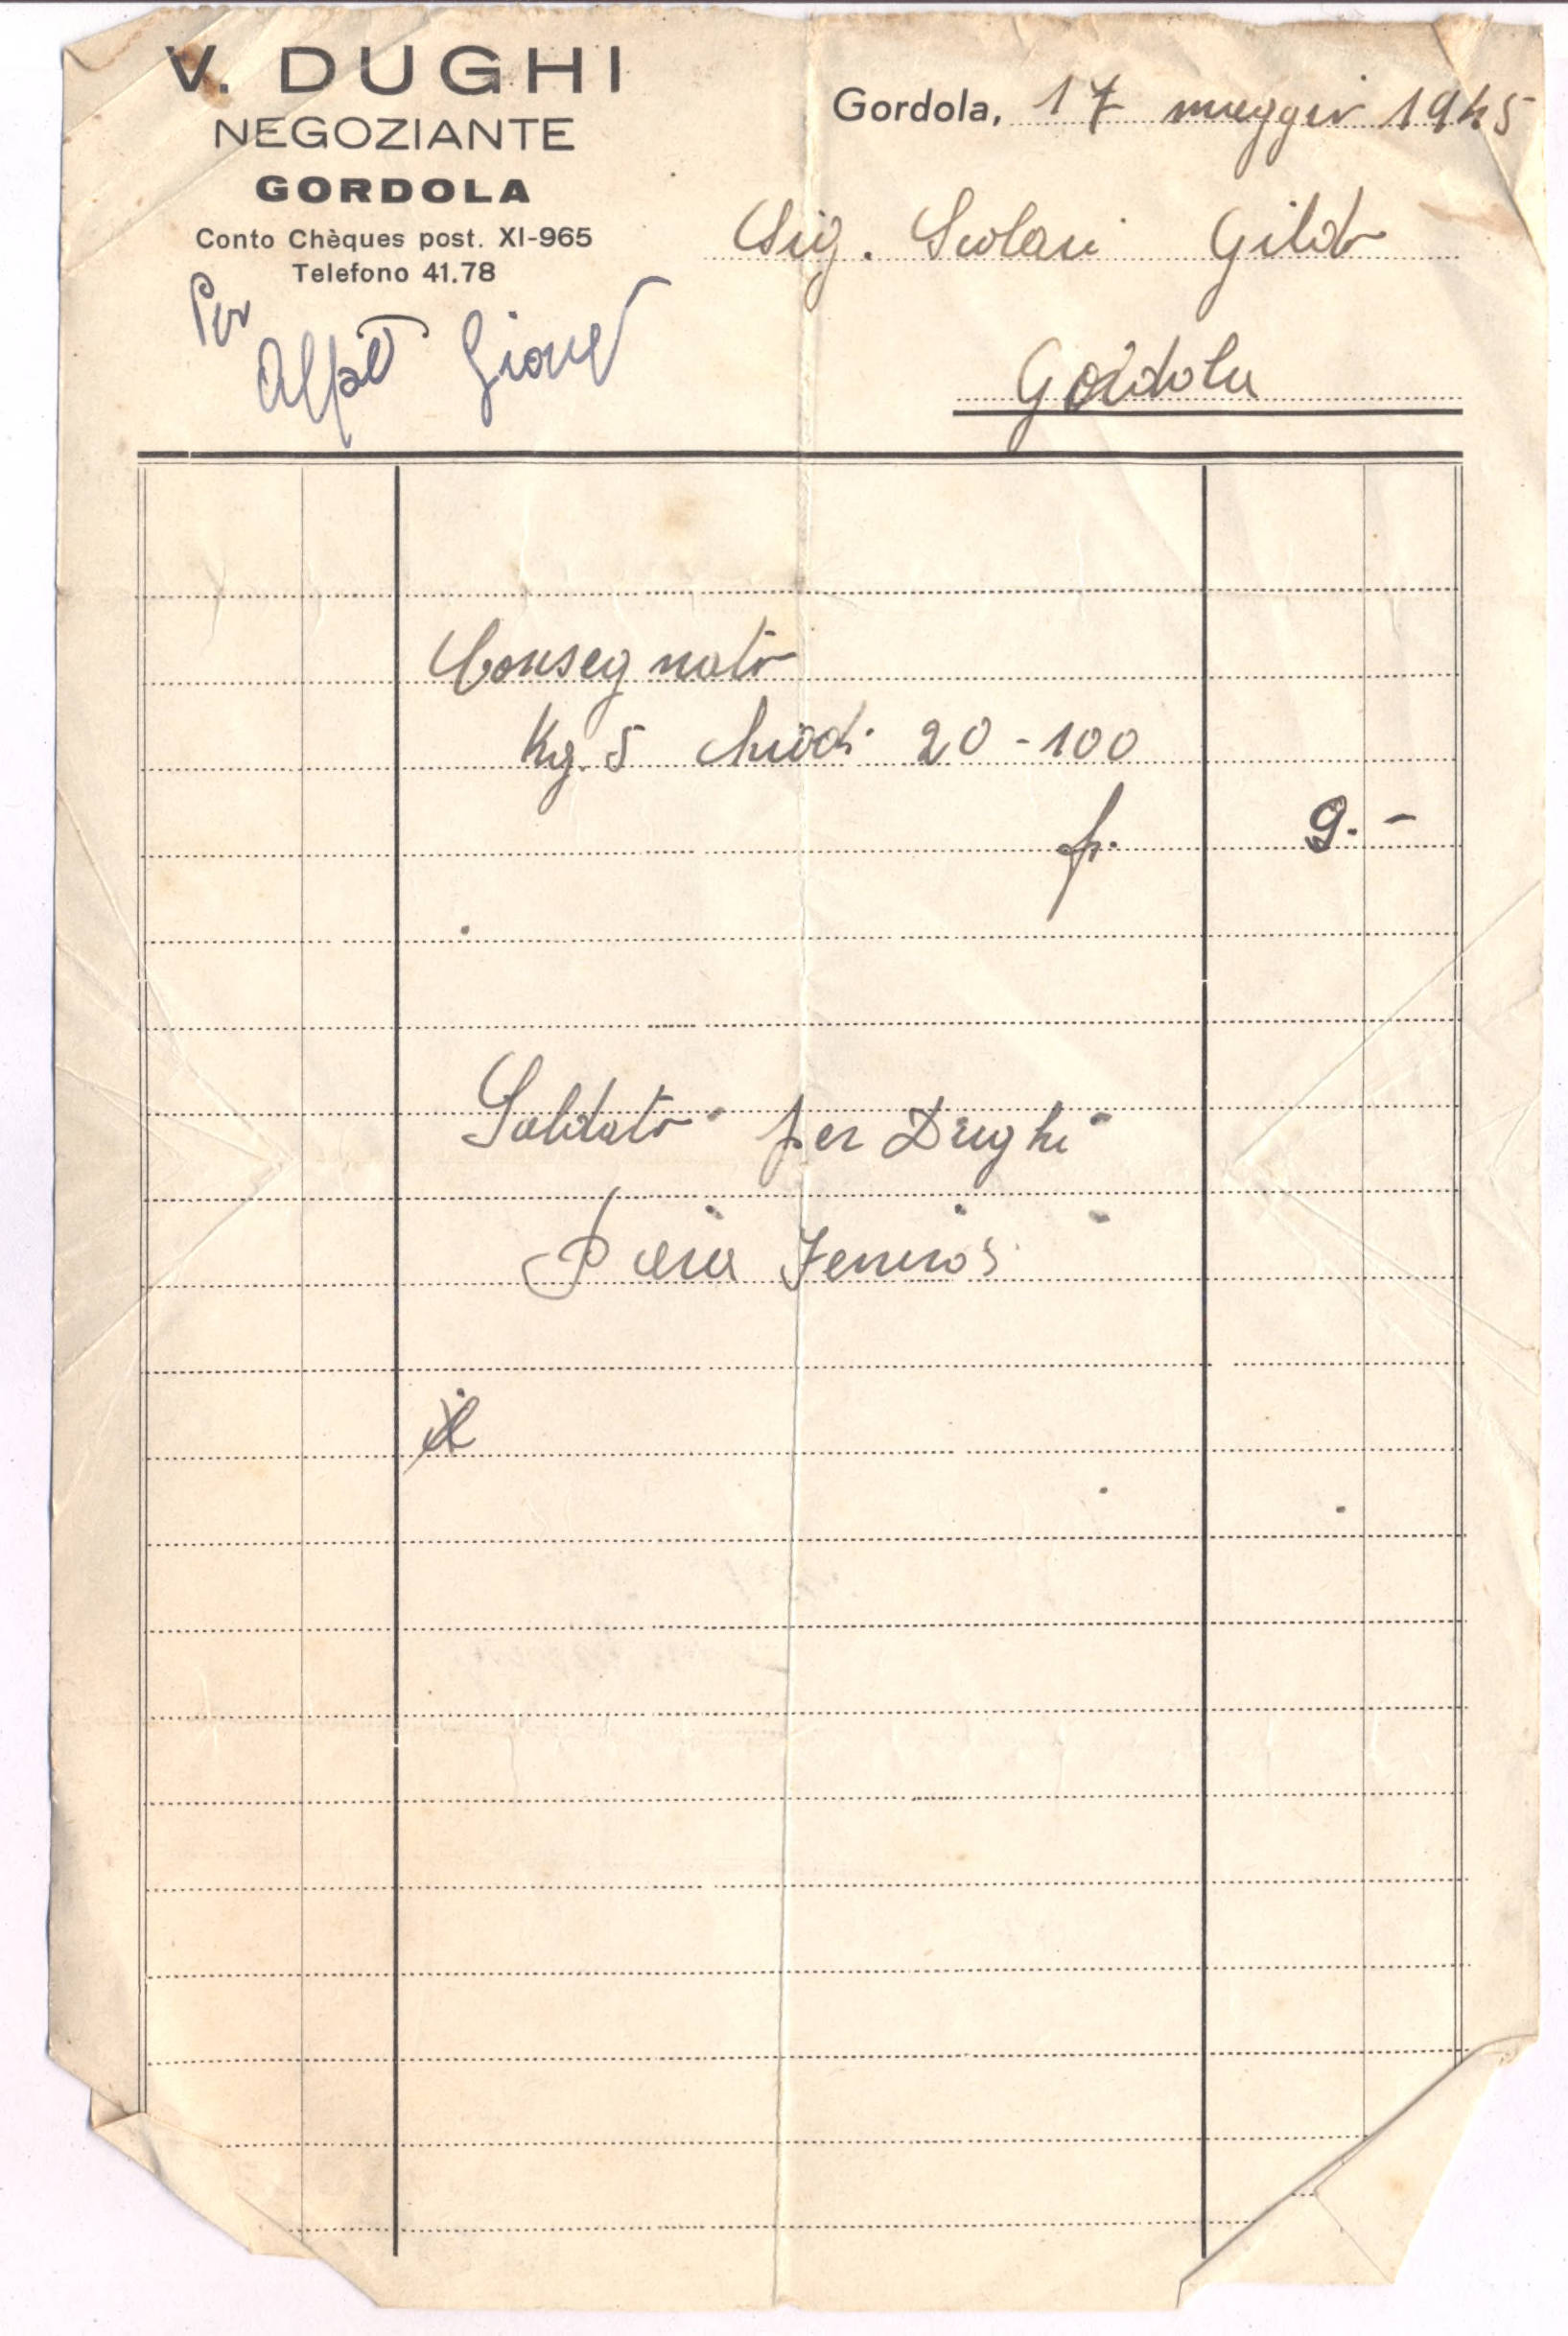 V. DUGHI
NEGOZIANTE
GORDOLA
Conto Chèques post. XI-965
Telefono 41.78
Per
Gordola, 17 maggio 1945
Sig. Scolari Gildo
Gordola
Consegnato
Kg. 5 chiodi 20-100
fr. 9.-
Saldato per Dughi